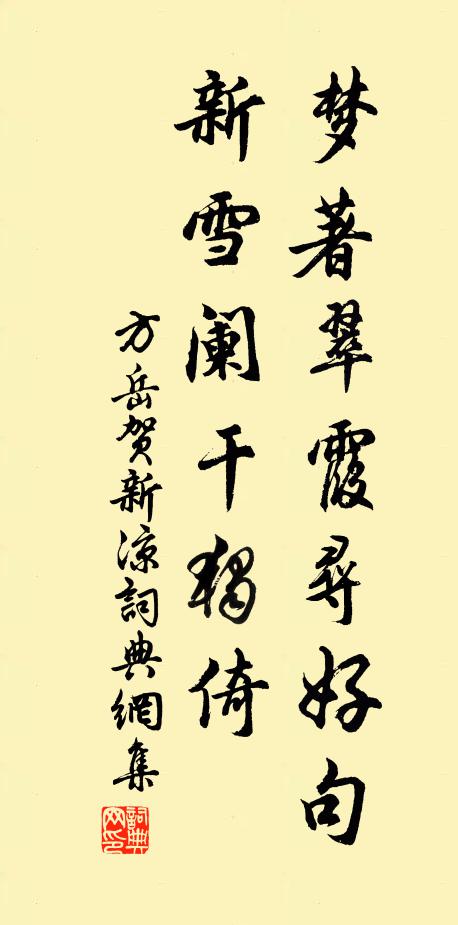 梦著翠霞寻好句
新雪阑干独倚
方岳贺新凉词典網集
詞典网印